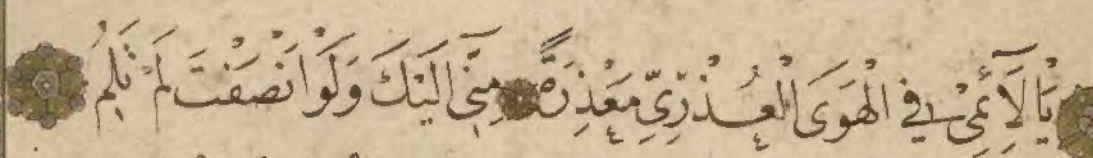 يَا لَآئِمِى فِي الْهَوَى الْعُذْرِيِّ مَعْذِرَةً مِنِّى اِلَيْكَ وَلَوْ اَنْصَفْتَ لَمْ تَلُمِ